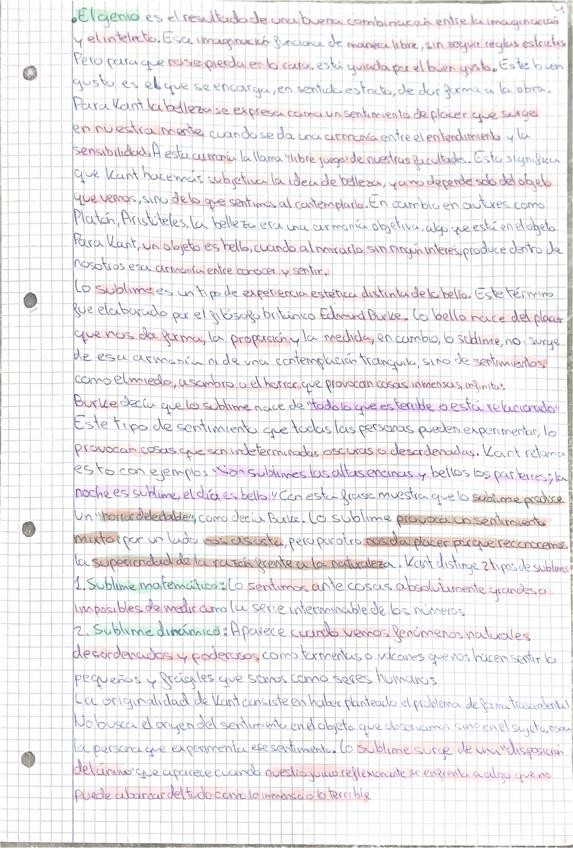 4
.El genio es el resultado de una buena combinación entre la imaginación
y el intelecto. Esa imaginación funciona de manera libre, sin seguir reglas estrictas
Pero para que no se pierda en lo raro, está guiada por el buen gusto. Este buen
gusto es el que se encarga, en sentido estricto, de dar forma a la obra.
Para Kant la belleza se expresa como un sentimiento de placer que surge
en nuestra mente, cuando se da una armonía entre el entendimiento y la
sensibilidad. A esta armonía la llama "libre juego de nuestras facultades. Esto significa
que Kant hace más subjetiva la idea de belleza, ya no depende solo del objeto
que vemos, sino de lo que sentimos al contemplarlo. En cambio en autores como
Platón, Aristóteles, la belleza era una armonía objetiva, algo que está en el objeto
Para Kant, un objeto es bello, cuando al mirarlo sin ningún interés, produce dentro de
nosotros esa armonía entre conocer y sentir.
Lo sublime es un tipo de experiencia estética distinta de lo bello. Este término
fue elaborado por el filósofo británico Edmund Burke. Lo bello nace del placer
que nos da forma, la proporción y la medida, en cambio, lo sublime, no surge
de esa armonía ni de una contemplación tranquila, sino de sentimientos
como el miedo, asombro o el horror, que provocan cosas inmensas, infinitas.
Burke decía que lo sublime nace de "todo lo que es terrible o está relacionado"
Este tipo de sentimiento que todas las personas pueden experimentar, lo
provocan cosas que son indeterminadas oscuras o desordenadas. Kant retoma
esto con ejemplo: "Son sublimes las altas encinas y bellos los parterres; la
noche es sublime, el día es bello." Con esta frase muestra que lo sublime produce
un "horror delectable", como decía Burke. Lo sublime provoca un sentimiento
mixto: por un lado nos asusta, pero por otro nos da placer porque reconocemos
la superioridad de la razón frente a la naturaleza. Kant distinge 2 tipos de sublime
1. Sublime matemático: Lo sentimos ante cosas absolutamente grandes o
imposibles de medir como la serie interminable de los números
2. Sublime dinámico: Aparece cuando vemos fenómenos naturales
desordenados y poderosos como tormentas o volcanes que nos hacen sentir lo
pequeños y frágiles que somos como seres humanos
La originalidad de Kant consiste en haber planteado el problema de forma trascendental
No busca el origen del sentimiento en el objeto que observamos sino en el sujeto, o sea
la persona que experimenta ese sentimiento. Lo sublime surge de una "disposición
del ánimo" que aparece cuando nuestro juicio reflexionante se enfrenta a algo que no
puede abarcar del todo como lo inmenso o lo terrible